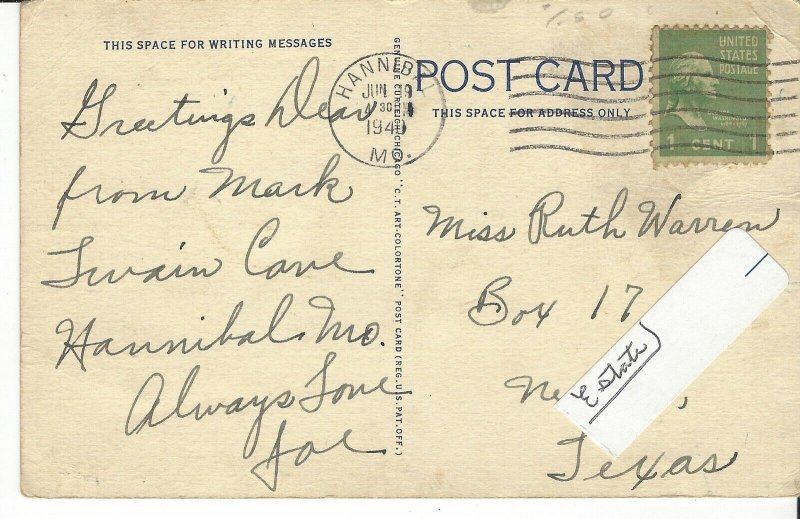 1.50
THIS SPACE FOR WRITING MESSAGES
Greetings Dear
from Mark
Twain Cave
Hannibal. Mo.
Always Love
Joe
GENUINE CURTEICH-CHICAGO "C.T. ART-COLORTONE" POST CARD (REG. U.S. PAT. OFF.)
HANNIBAL
JUN
30
194
MO.
POST CARD
THIS SPACE FOR ADDRESS ONLY
UNITED
STATES
POSTAGE
WASHINGTON
1 CENT 1
Miss Ruth Warren
Box 17
Ne ,
Estate
Texas